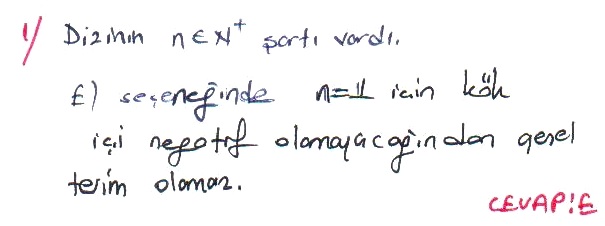 1) Dizinin n∈N⁺ şartı vardı.
E) seçeneğinde n=1 için kök
içi negatif olamayacağından genel
terim olamaz.
CEVAP:E